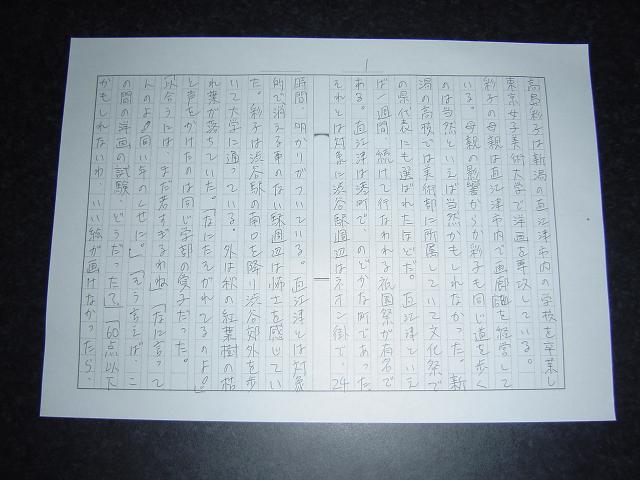 1
高島彩子は新潟の直江津市内の学校を卒業し
東京女子美術大学で洋画を専攻している。
彩子の母親は直江津市内で画廊を経営して
いる。母親の影響からか彩子も同じ道を歩く
のは当然といえば当然かもしれなかった。新
潟の高校では美術部に所属していて文化祭で
の県代表にも選ばれたほどだ。直江津といえ
ば一週間続けて行なわれる祇園祭が有名で
ある。直江津は港町で、のどかな町であった。
それとは対象に渋谷駅周辺はネオン街で、24
時間、明かりがついている。直江津とは対象
的で消える事のない駅周辺は怖さを感じてい
た。彩子は渋谷駅の南口を降り渋谷郊外を歩
いて大学に通っている。外は秋の紅葉樹の枯
れ葉が落ちていた。「なにたそがれてるのよ。」
と声をかけたのは同じ学部の愛子だった。
似合うには、まだ若すぎるわね」「なに言って
んのよ。同い年のくせに。」「そう言えば、こ
の間の洋画の試験、どうだった?」「60点以下
かもしれないわ、いい絵が画けなかったら、